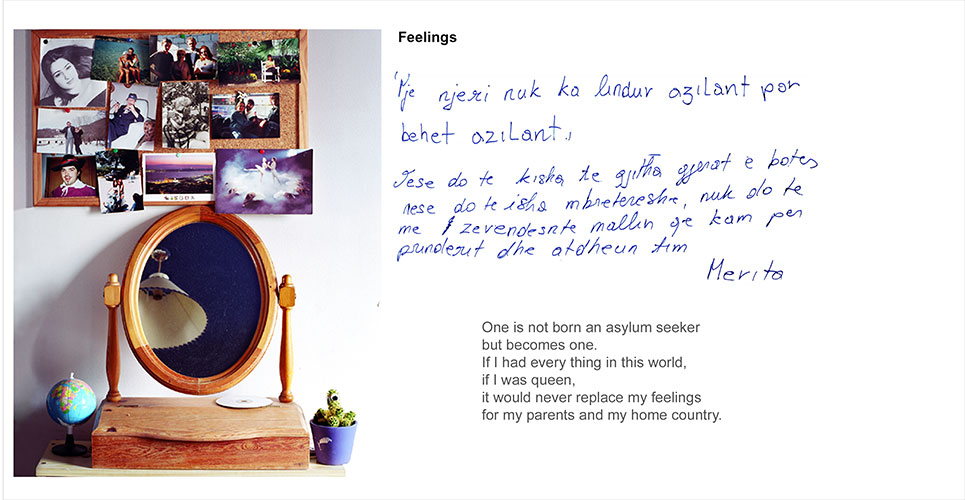 Feelings
Nje njeri nuk ka lindur azilant por
behet azilant.
Nese do te kisha te gjitha gjerat e botes
nese do te isha mbretereshe, nuk do te
me zevendesnte mallin qe kam per
prinderit dhe atdheun tim
Merita
One is not born an asylum seeker
but becomes one.
If I had every thing in this world,
if I was queen,
it would never replace my feelings
for my parents and my home country.